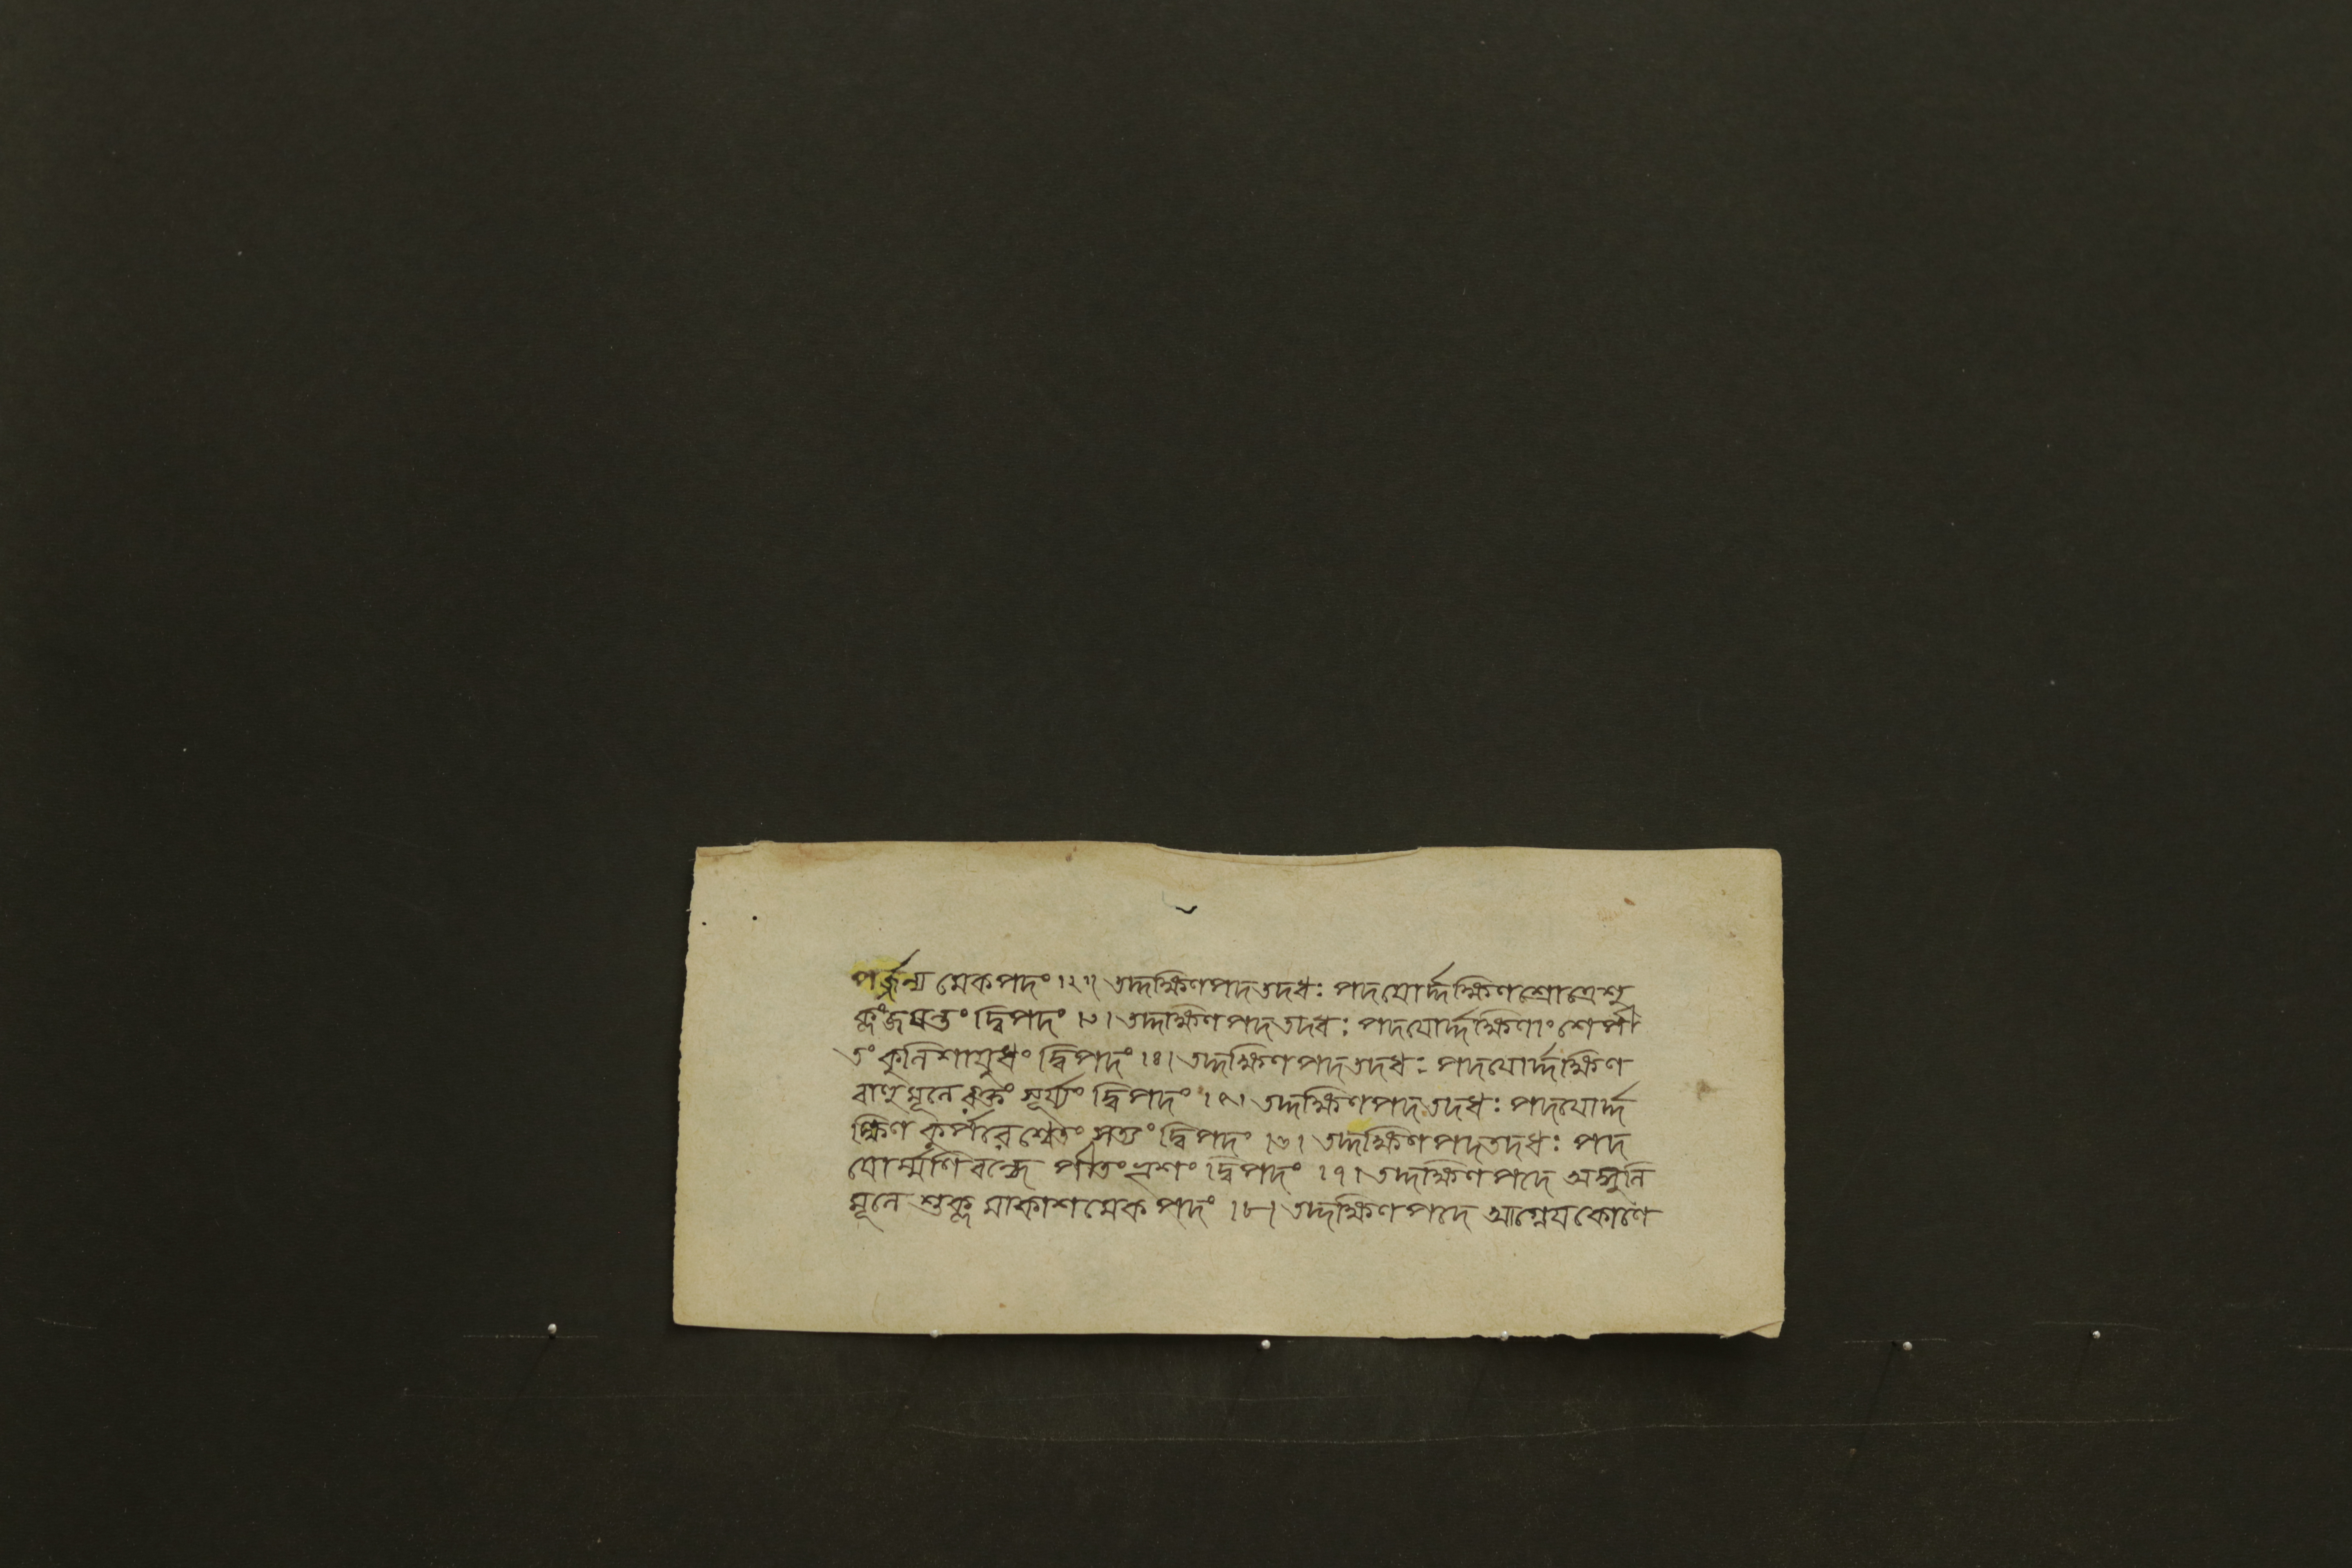 পর্জ্জন্য মেকপদং ।২॥ তদ্দক্ষিণপদতদধঃ পদযোর্দ্দক্ষিণশ্রোত্রেশু
ক্লংজযন্তং দ্বিপদং ।৩। তদ্দক্ষিণপদতদধঃ পদযোর্দ্দক্ষিণাংশেপী
তং কুলিশাযুধং দ্বিপদং ।৪। তদ্দক্ষিণপদতদধঃ পদযোর্দ্দক্ষিণ
বাহুমূলে রক্তং সূর্য্যং দ্বিপদং ।৫। তদ্দক্ষিণপদতদধঃ পদযোর্দ্দ
ক্ষিণ কূর্পরে শ্বেতং সত্যং দ্বিপদং ।৬। তদ্দক্ষিণপদতদধঃ পদ
যোর্ম্মণিবন্ধে পীতং ভৃশং দ্বিপদং ।৭। তদ্দক্ষিণপদে অঙ্গুলি
মূলে শুক্ল মাকাশমেকপদং ।৮। তদ্দক্ষিণপদে আগ্নেযকোণে